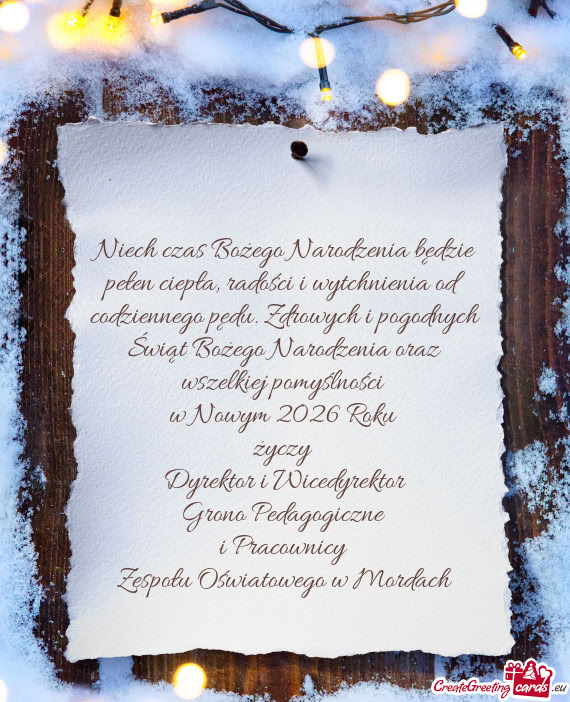 Niech czas Bożego Narodzenia będzie
pełen ciepła, radości i wytchnienia od
codziennego pędu. Zdrowych i pogodnych
Świąt Bożego Narodzenia oraz
wszelkiej pomyślności
w Nowym 2026 Roku
życzy
Dyrektor i Wicedyrektor
Grono Pedagogiczne
i Pracownicy
Zespołu Oświatowego w Mordach
CreateGreeting cards .eu